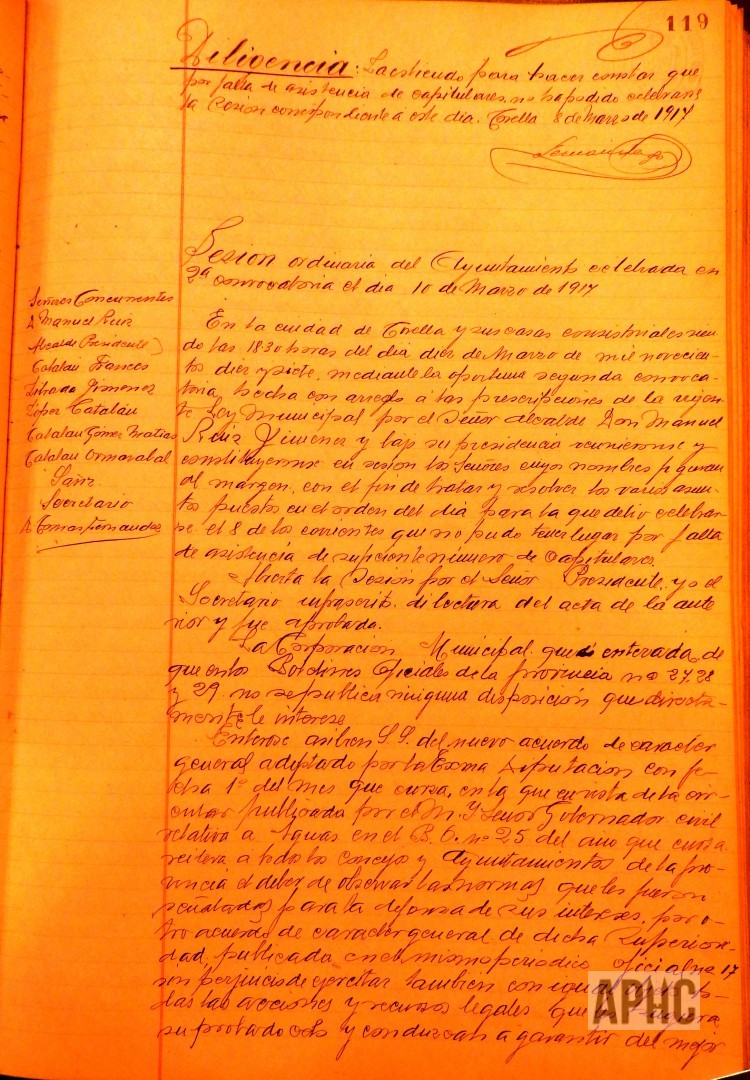 119
Diligencia: La estiendo para hacer constar que
por falta de asistencia de capitulares no ha podido celebrarse
la Cesion correspondiente a este dia. Corella 8 de Marzo de 1917
Sesion ordinaria del Ayuntamiento celebrada en
2ª convocatoria el dia 10 de Marzo de 1917
Señores Concurrentes
D Manuel Ruiz
Alcalde Presidente
Catalán Frances
Jimenez
López Catalán
Catalan Gómez Matias
Catalan Ormazabal
Sanz
Secretario
En la ciudad de Corella y sus casas consistoriales sien
do las 18'30 horas del dia diez de Marzo de mil novecien
tos diez y siete, mediante la oportuna segunda convoca
toria, hecha con arreglo á las prescripciones de la vigen
te Ley Municipal por el Señor Alcalde Don Manuel
Ruiz Jimenez y bajo su presidencia reunieronse y
constituyeronse en sesion los Señores cuyos nombres figuran
al margen, con el fin de tratar y resolver los varios asun
tos puestos en el orden del dia para la que debio celebrar
se el 8 de los corrientes que no pudo tener lugar por falta
de asistencia de suficiente número de Capitulares.
Abierta la Sesion por el Señor Presidente, yo el
Secretario infrascrito, di lectura del acta de la ante
rior y fue aprobada.
La Corporacion Municipal quedó enterada de
que en los Boletines Oficiales de la provincia nº 27, 28
y 29 no se publica ninguna disposición que directa-
mente le interese
Enterose asi bien S.S. del nuevo acuerdo de caracter
general adoptado por la Exma Diputacion con fe-
cha 1º del mes que cursa, en la que en vista de la cir-
cular publicada por el M. Y Señor Gobernador civil
relativa a Aguas en el B. O. nº 25 del año que cursa
reitera á todos los concejos y Ayuntamientos de la pro-
vincia el deber de observar las normas que les fueron
señaladas para la defensa de sus intereses, por o-
tro acuerdo de caracter general de dicha Superiori-
dad, publicada en el mismo periodico oficial nº 17
sin perjuicio de ejercitar tambien con igual
das las acciones y recursos legales que les sugiera
su probado celo y conduzcan a garantir del mejor
APHC